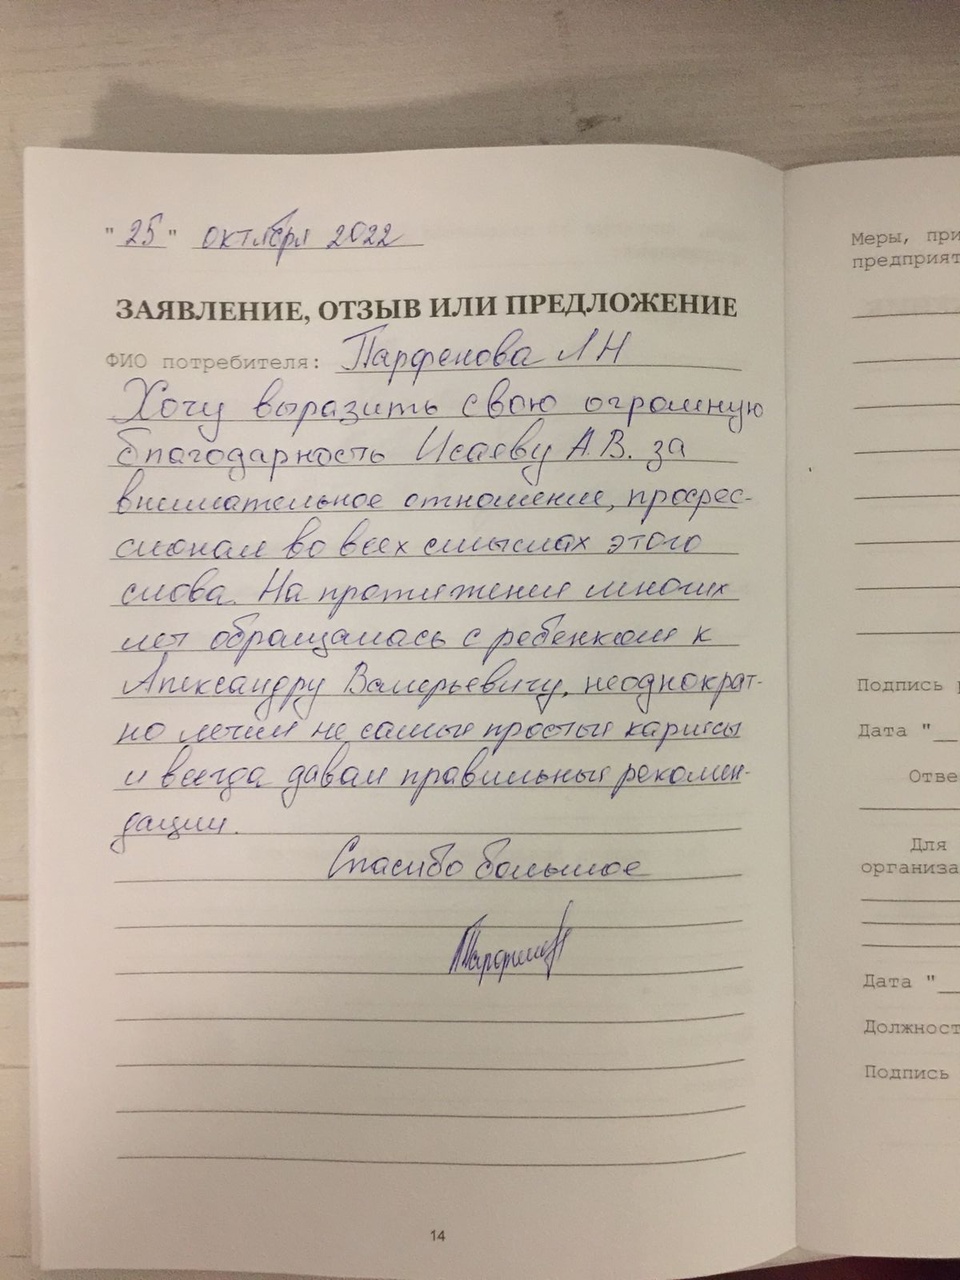 "25" октября 2022
ЗАЯВЛЕНИЕ, ОТЗЫВ ИЛИ ПРЕДЛОЖЕНИЕ
ФИО потребителя: Парфенова Л Н
Хочу выразить свою огромную
благодарность Исаеву А.В. за
внимательное отношение, профес-
сионал во всех смыслах этого
слова. На протяжении многих
лет обращалась с ребенком к
Александру Валерьевичу, неоднократ-
но лечил не самые простые кариесы
и всегда давал правильные рекомен-
дации.
Спасибо большое
14
Меры, при
предприят
Подпись
Дата "__
Отве
Для
организа
Дата "__
Должност
Подпись